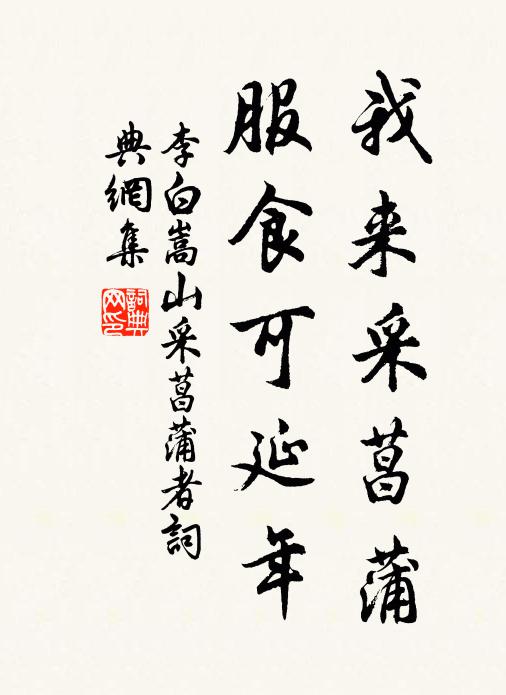 我来采菖蒲
服食可延年
李白嵩山采菖蒲者詞
典網集
詞典网印